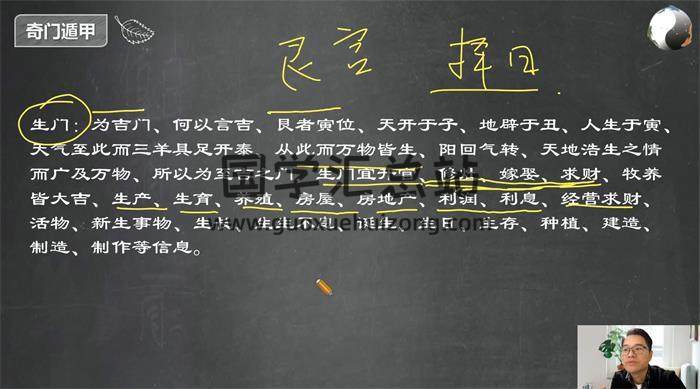 奇门遁甲
艮宫 择日
生门：为吉门、何以言吉、艮者寅位、天开于子、地辟于丑、人生于寅、
天气至此而三羊具足开泰、从此而万物皆生、阳回气转、天地浩生之情
而广及万物、所以为至吉之门、生门宜开、修造、嫁娶、求财、牧养
皆大吉、生产、生育、养殖、房屋、房地产、利润、利息、经营求财、
活物、新生事物、生长、生生不息、诞生、生日、生存、种植、建造、
制造、制作等信息。
国学汇总站
www.guoxuehuizong.com